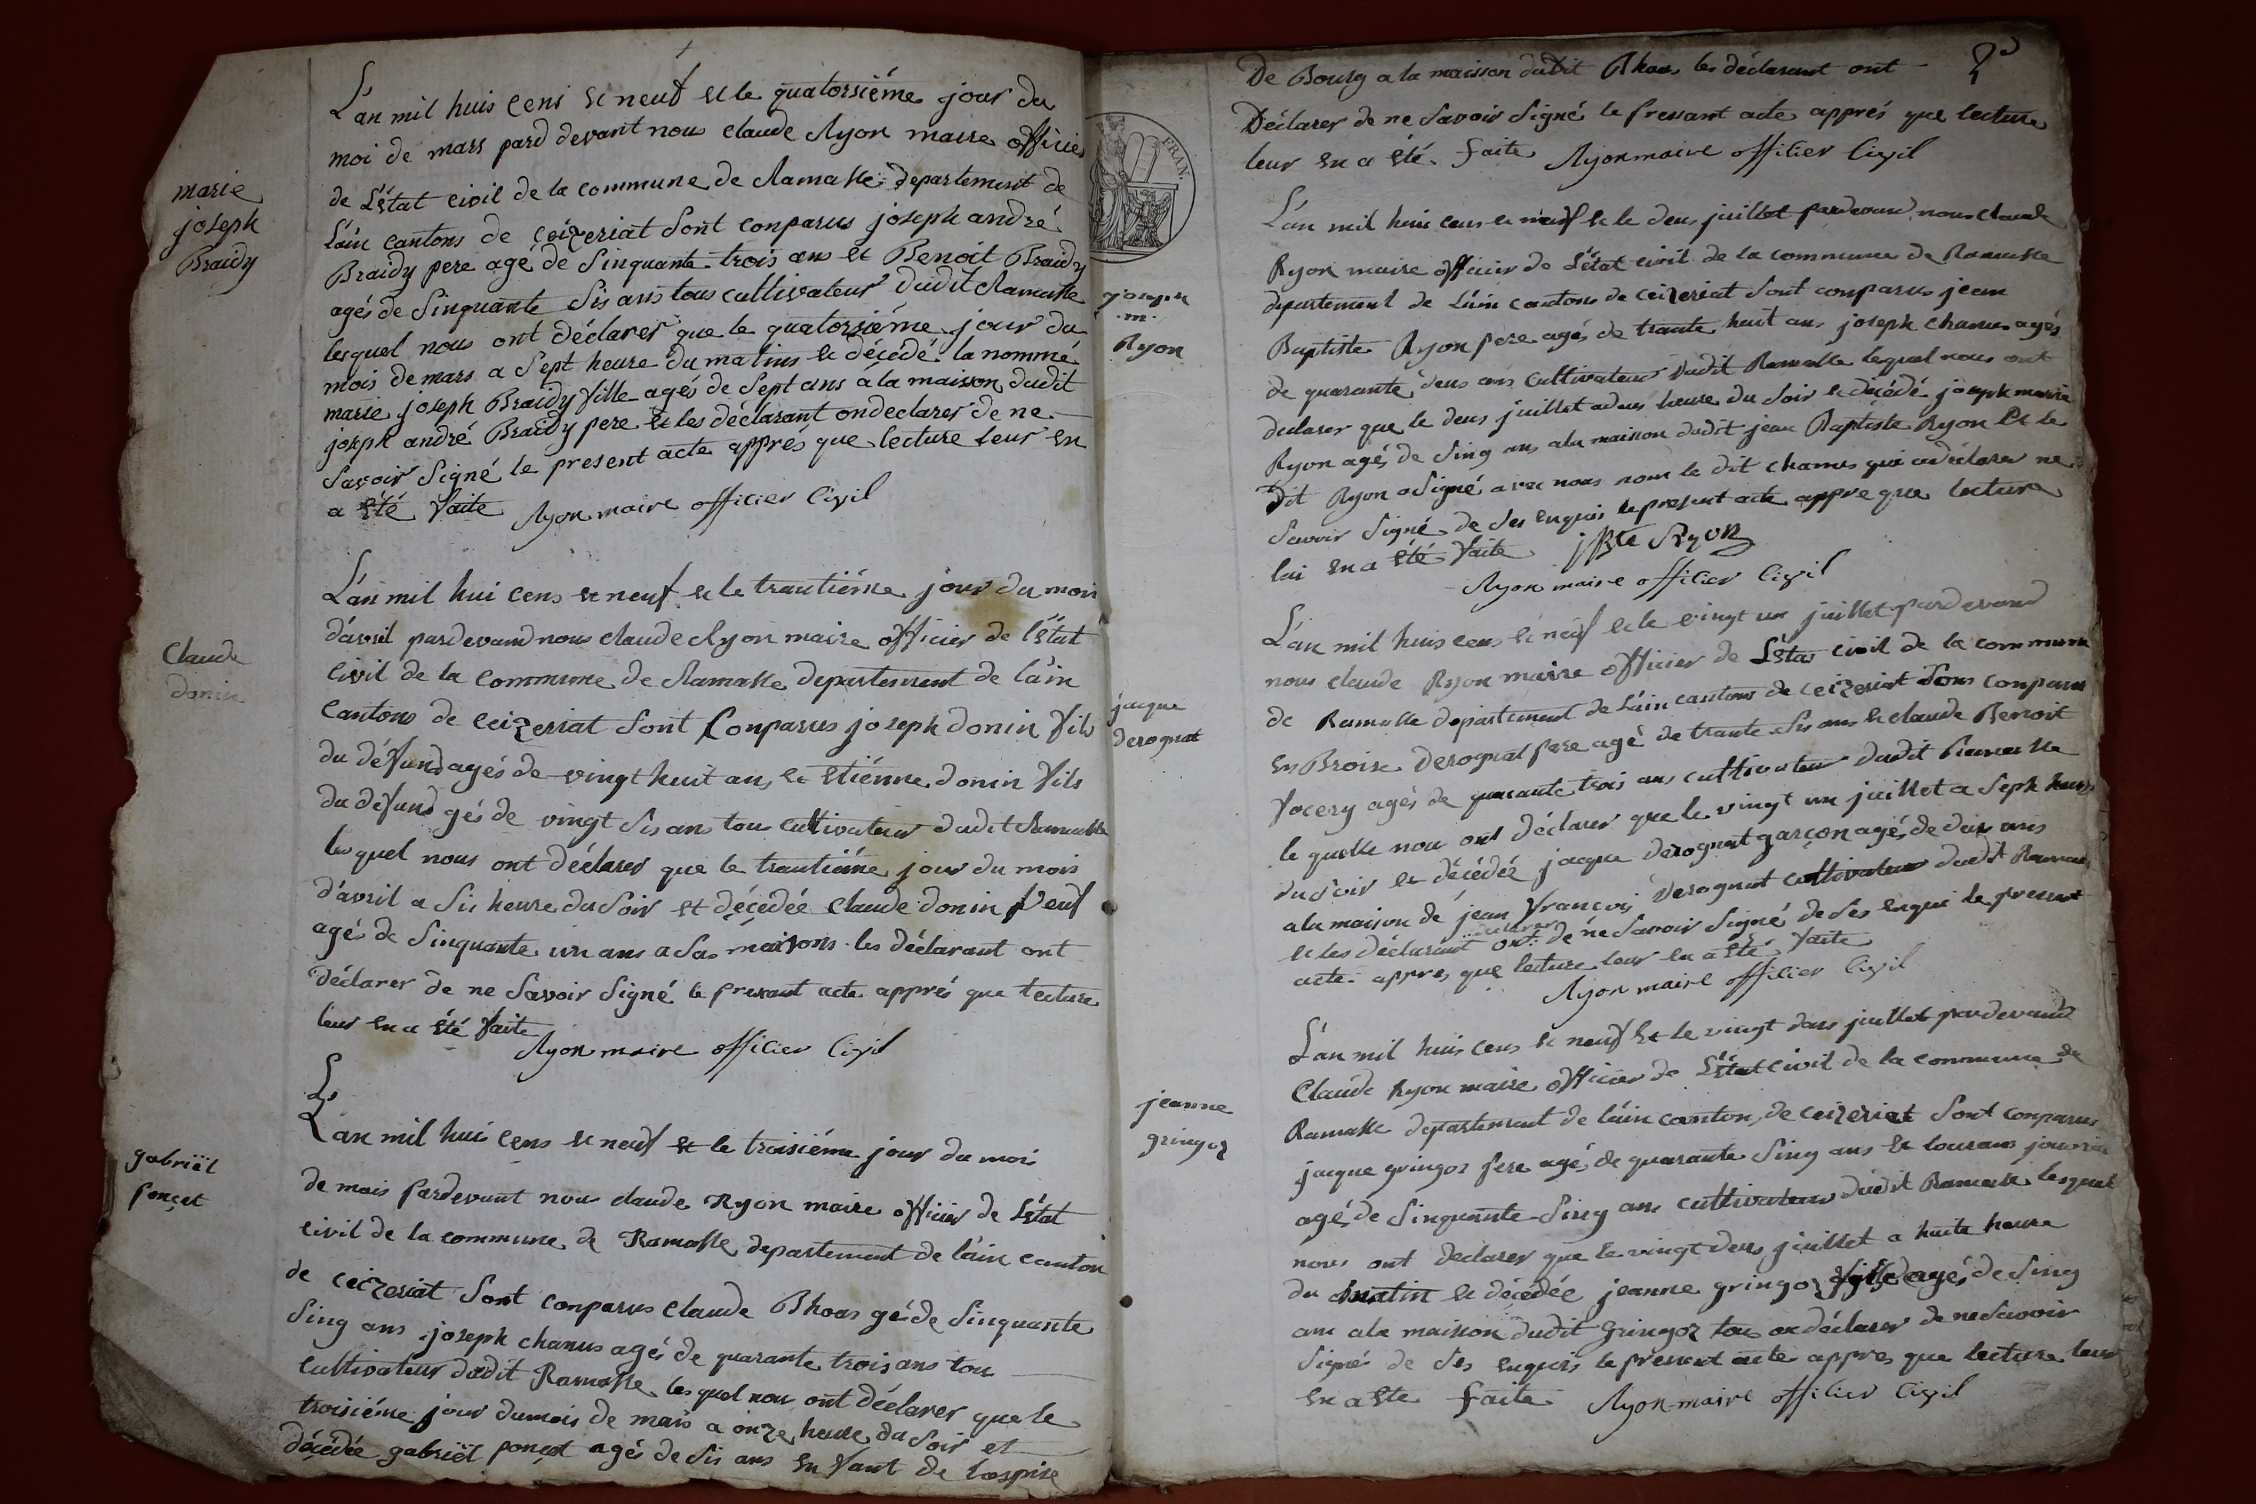 marie
joseph
Braidy
L'an mil huis cens et neuf et le quatorsiéme jour du
moi de mars pard devant nous claude Ryon maire officier
de L'état civil de la commune de Ramasse departement de
L'ain cantons de ceizeriat sont conparus joseph andré
Braidy pere agé de sinquante trois ans et Benoit Braidy
agés de sinquante sis ans tous cultivateur dudit Ramasse
lesquel nous ont déclarer que le quatorsiéme jour du
mois de mars a sept heure du matins et décédé la nommé
marie joseph Braidy fille agés de sept ans a la maison dudit
joseph andré Braidy pere et les déclarant on declarer de ne
savoir signé le present acte apprés que lecture leur en
a été faite Ryon maire officier civil
Claude
donin
L'an mil hui cens et neuf et le trantiéme jour du moi
d'avril pardevand nous claude Ryon maire officier de l'état
civil de la commune de Ramasse departement de l'ain
cantons de ceizeriat sont conparus joseph donin fils
du défund agés de vingt huit ans et etiénne donin fils
du défund gés de vingt sis ans tou cultivateur dudit Ramasse
lesquel nous ont déclarer que le trantiéme jour du mois
d'avril a sis heure du soir et décédée claude donin veuf
agés de sinquante un ans a sa maisons les déclarant ont
déclarer de ne savoir signé le presant acte apprés que lecture
leur en a été faite
Ryon maire officier civil
L'
gabriël
ponçet
L'an mil huis cens et neuf et le troisiéme jour du moi
de mais pardevant nou claude Ryon maire officier de L'état
civil de la commune de Ramasse departement de l'ain canton
de ceizeriat sont conparus claude Rhoas gé de sinquante
sinq ans joseph chanus agés de quarante trois ans tou
cultivateur dudit Ramasse lesquel nou ont déclarer que le
troisiéme jour du mois de mais a onze heure du soir et
décédée gabriël ponçet agés de sis ans enfant de l'ospise
2e
De Bourg a la maison dudit Rhoas les déclarant ont
Déclarer de ne savoir signé le pressant acte apprés que lecture
leur en a été faite Ryon maire officier civil
FRAN.
joseph
.m.
Ryon
L'an mil huis cens et neuf et le deus juillet pardevand nous claude
Ryon maire officier de L'état civil de la commune de Ramasse
departement de L'ain cantons de ceizeriat sont conparus jean
Baptiste Ryon pere agés de trante huit ans joseph chanus agés
de quarante deus ans cultivateur dudit Ramasse lequel nous ont
declarer que le deus juillet a deus heure du soir et décédé joseph marie
Ryon agés de sinq ans a la maison dudit jean Baptiste Ryon et le
dit Ryon a signé avec nous non le dit chanus qui a déclarer ne
savoir signé de ses enquis le present acte appre que lecture
lui en a été faite jBte Ryon
Ryon maire officier civil
jacque
derognat
L'an mil huis cens et neuf et le vingt un juillet pardevand
nous claude Ryon maire officier de L'état civil de la commune
de Ramasse departement de L'ain cantons de ceizeriat sons conparus
enBroise derognat pere agé de trante sis ans et claude Benoit
focery agés de quarante trois ans cultivateur dudit Ramasse
le quelle nou ont déclarer que le vingt un juillet a seph heure
du soir et décédée jacque derognat garçon agés de deus ans
a la maison de jean françois derognat cultivateur dudit Ramasse
et les déclarant ont declarer de ne savoir signé de ses enqui le present
acte appres que lecture leur en a été faite
Ryon maire officier civil
jeanne
gringoz
L'an mil huis cens et neuf et le vingt deus juillet pardevand
Claude Ryon maire officier de L'état civil de la commune de
Ramasse departement de l'ain canton de ceizeriat sont conparus
jacque gringoz pere agés de quarante sinq ans et lourans
agé de sinquante sinq ans cultivateur dudit Ramasse lesquel
nous ont declarer que le vingt deus juillet a huite heure
du matin et décédée jeanne gringoz fille agés de sinq
ans a la maison dudit gringoz tous on déclarer de ne savoir
signés de ses enquis le pressent acte appres que lecture leur
en a ete faite Ryon maire officier civil